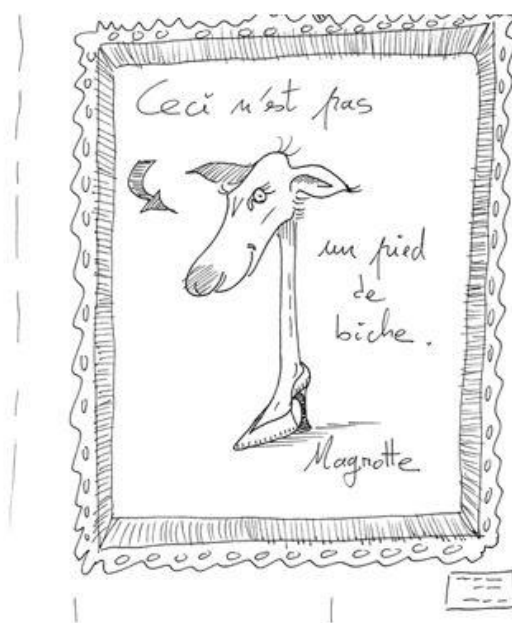 Ceci n'est pas
un pied
de
biche.
Magnotte